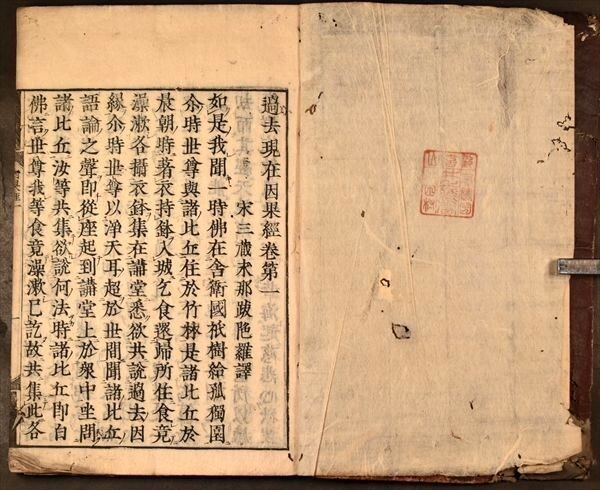 過去現在因果經卷第一
宋三藏求那跋陁羅譯
如是我聞一時佛在舍衛國祇樹給孤獨園
尒時世尊與諸比丘住於竹林是諸比丘於
晨朝時著衣持鉢入城乞食還歸所住食竟
澡漱各攝衣鉢集在講堂悉欲共説過去因
緣尒時世尊以淨天耳超於世間聞諸比丘
語論之聲即從座起到講堂上於衆中坐問
諸比丘汝等共集欲説何法時諸比丘即白
佛言世尊我等食竟澡漱已訖故共集此各